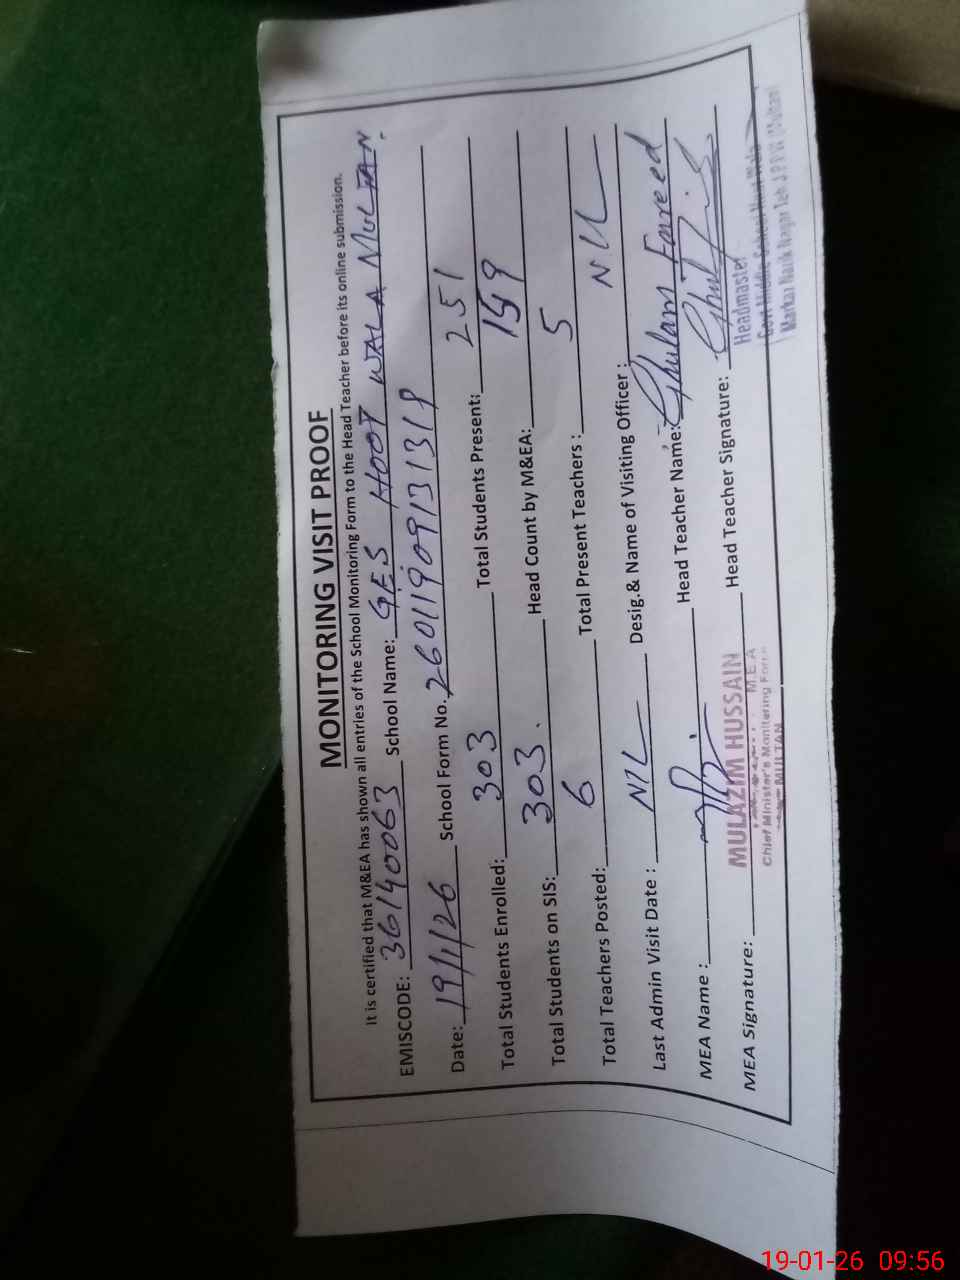 MONITORING VISIT PROOF
It is certified that M&EA has shown all entries of the School Monitoring Form to the Head Teacher before its online submission.
EMISCODE: 36140063 School Name: GES HOOT WALA MULTAN.
Date: 19/1/26 School Form No. 2601190913131
Total Students Enrolled: 303 Total Students Present: 251
Total Students on SIS: 303. Head Count by M&EA: 159
Total Teachers Posted: 6 Total Present Teachers : 5
Last Admin Visit Date : NIL Desig.& Name of Visiting Officer : NIL
MEA Name : Head Teacher Name: Ghulam Fareed
MEA Signature: Head Teacher Signature:
MULAZIM HUSSAIN
M.E.A
Chief Minister's Monitoring Force
MULTAN
Headmaster
Govt Middle School Hoot Wala
Markaz Nagar Teh
19-01-26 09:56